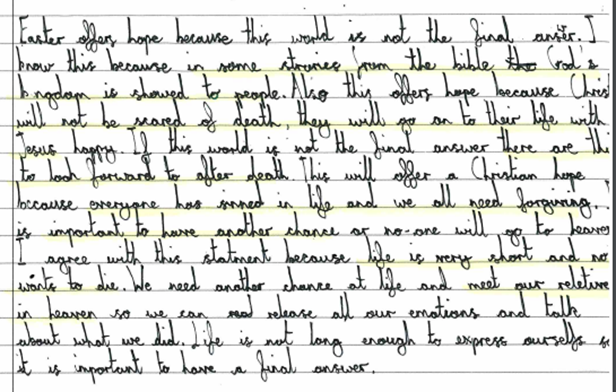 Easter offers hope because this world is not the final answer. I
know this because in some strories from the bible the God's
kingdom is showed to people. Also this offers hope because Chris
will not be scared of death, they will go on to their life with
Jesus happy. If this world is not the final answer there are thi
to look forward to after death. This will offer a Christian hope
because everyone has sinned in life and we all need forgiving.
is important to have another chance or no-one will go to heaven
I agree with this statment because life is very short and no
wants to die. We need another chance at life and meet our reletive
in heaven so we can read release all our emotions and talk
about what we did. Life is not long enough to express ourselfs so
it is important to have a final answer.